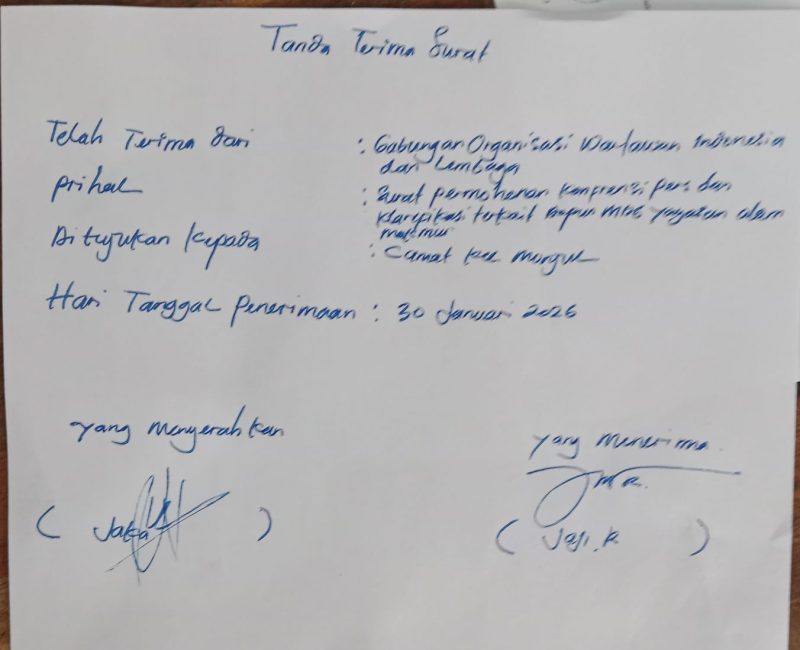 Tanda Terima Surat
Telah Terima dari : Gabungan Organisasi Wartawan Indonesia
dan Lembaga
prihal : Surat permohonan konprensi pers dan
klarepikasi terkait dapur MBG yayasan alam
makmur
Ditujukan Kepada : Camat kec
Hari Tanggal penerimaan : 30 Januari 2026
yang menyerahkan
yang menerima
( Jaka )
( Jaji. R )